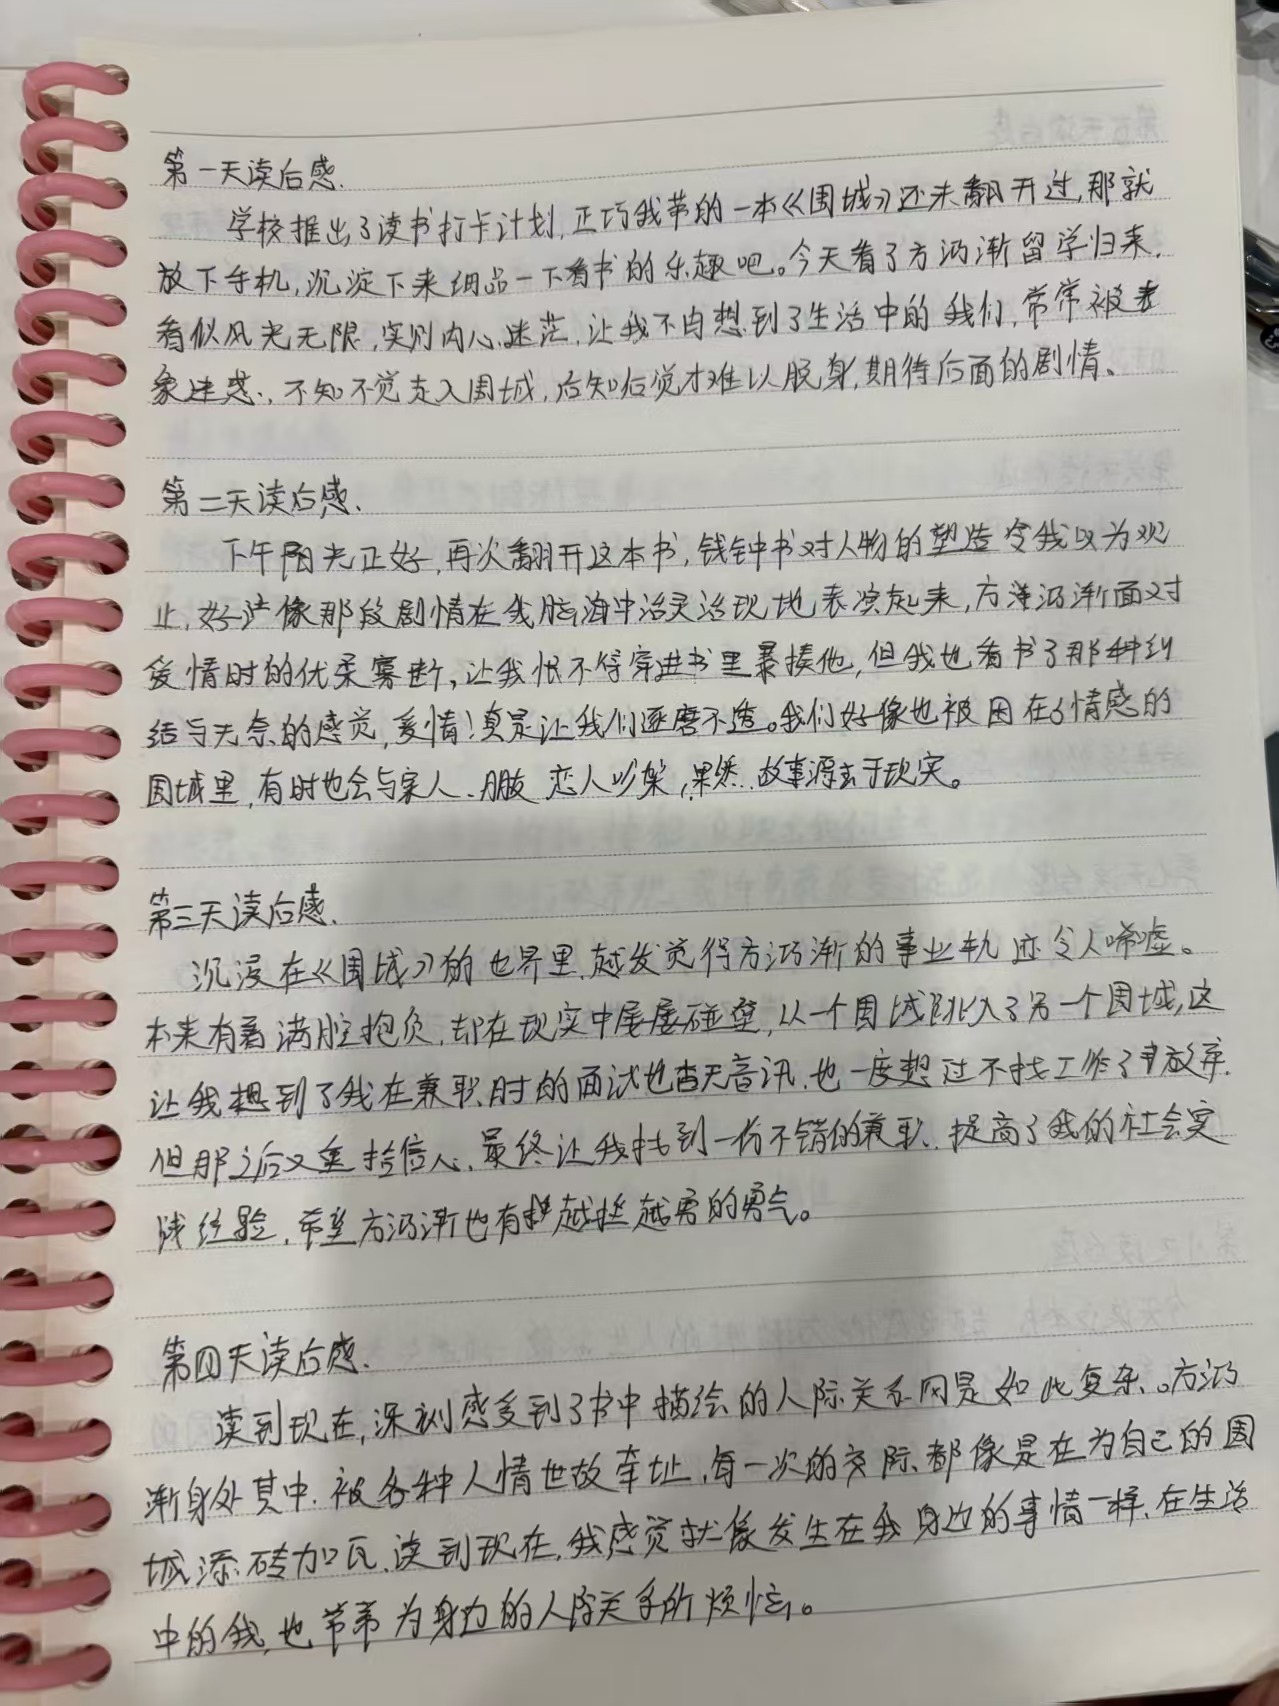 第一天读后感.
学校推出了读书打卡计划,正巧我带的一本《围城》还未翻开过,那就
放下手机,沉淀下来细品一下看书的乐趣吧。今天看了方鸿渐留学归来,
看似风光无限,实则内心迷茫,让我不自想到了生活中的我们,常常被表
象迷惑,不知不觉走入围城,后知后觉才难以脱身,期待后面的剧情。
第二天读后感.
下午阳光正好,再次翻开这本书,钱钟书对人物的塑造令我叹为观
止,好像那段剧情在我脑海中活灵活现地表演起来,方鸿渐面对
爱情时的优柔寡断,让我恨不得穿进书里暴揍他,但我也看书了那种纠
结与无奈的感觉,爱情!真是让我们逐磨不透。我们好像也被困在了情感的
围城里,有时也会与家人、朋友 恋人吵架,果然,故事源于现实。
第三天读后感.
沉浸在《围城》的世界里,越发觉得方鸿渐的事业轨迹令人唏嘘。
本来有着满腔抱负,却在现实中屡屡碰壁,从一个围城跳入了另一个围城,这
让我想到了我在兼职时的面试也杳无音讯,也一度想过不找工作了放弃.
但那之后又重拾信心,最终让我找到一份不错的兼职,提高了我的社会实
践经验,希望方鸿渐也有越挫越勇的勇气。
第四天读后感.
读到现在,深刻感受到了书中描绘的人际关系网是如此复杂。方鸿
渐身处其中,被各种人情世故牵扯,每一次的交际,都像是在为自己的围
城添砖加瓦,读到现在,我感觉就像发生在我身边的事情一样,在生活
中的我,也常常为身边的人际关系所烦恼。